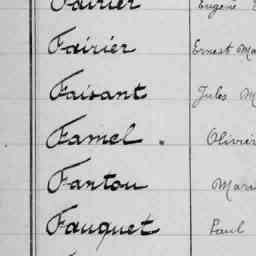 Fairier Eugène
Fairier Ernest Ma
Faisant Jules M
Famel. Olivier
Fantou Mari
Fauquet Paul